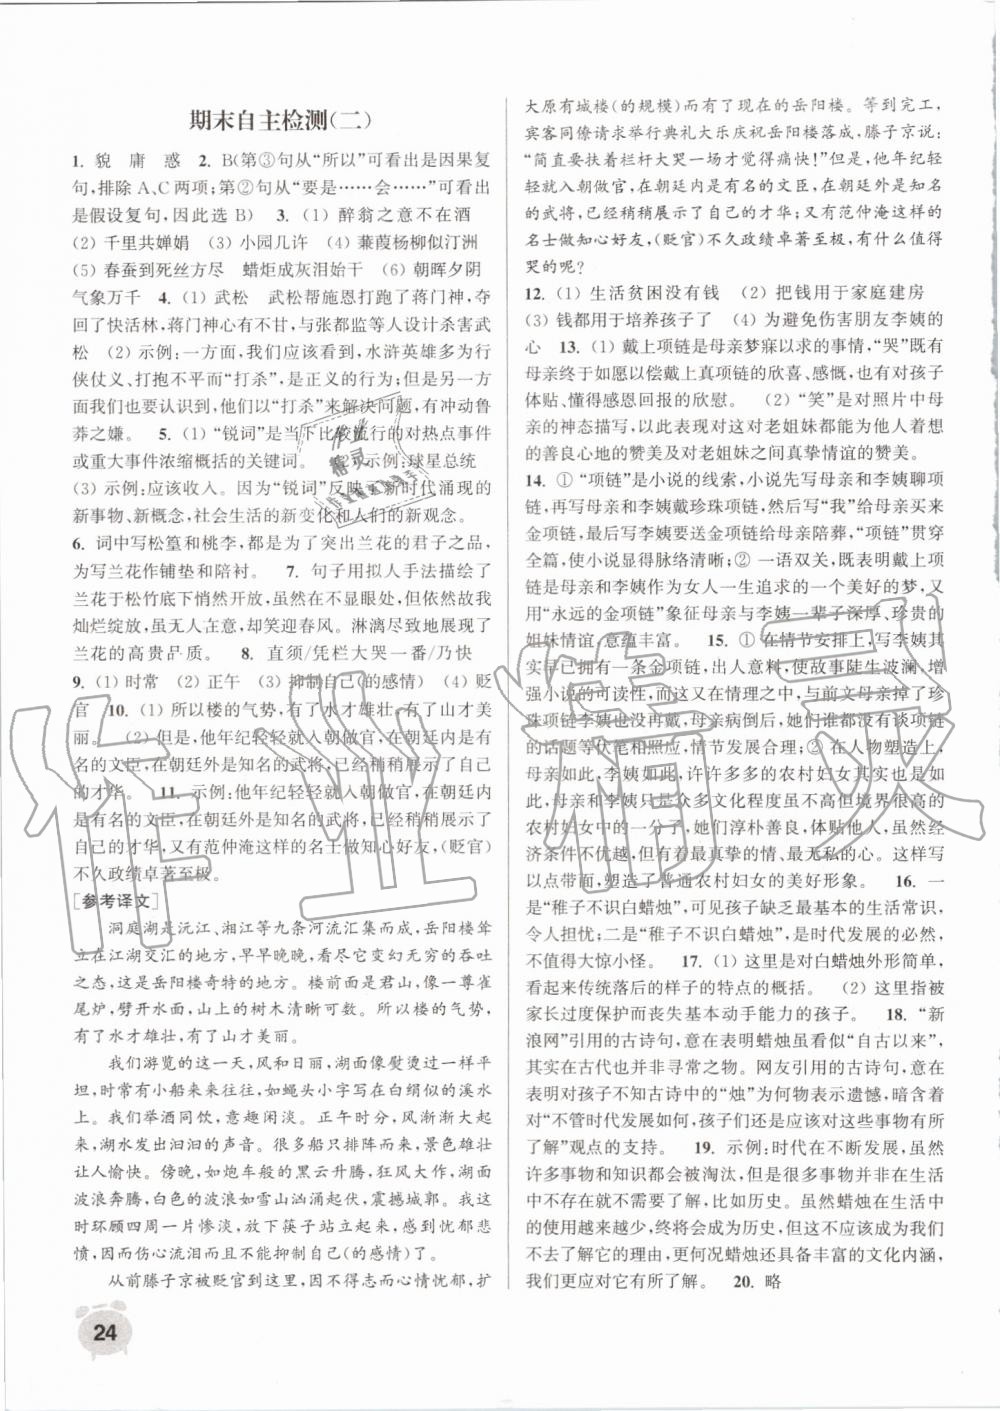 期末自主检测(二)
1. 貌 庸 惑 2. B(第③句从“所以”可看出是因果复
句,排除 A、C两项;第②句从“要是……会……”可看出
是假设复句,因此选 B) 3. (1) 醉翁之意不在酒
(2) 千里共婵娟 (3) 小园几许 (4) 蒹葭杨柳似汀洲
(5) 春蚕到死丝方尽 蜡炬成灰泪始干 (6) 朝晖夕阴
气象万千 4. (1) 武松 武松帮施恩打跑了蒋门神,夺
回了快活林,蒋门神心有不甘,与张都监等人设计杀害武
松 (2) 示例:一方面,我们应该看到,水浒英雄多为行
侠仗义、打抱不平而“打杀”,是正义的行为;但是另一方
面我们也应该看到,他们以“打杀”来解决问题,有冲动鲁
莽之嫌。 5. (1) “锐词”是当下比较流行的对热点事件
或重大事件浓缩概括的关键词。 (2) 示例:球星总统
(3) 示例:应该收入。因为“锐词”反映了新时代涌现的
新事物、新概念,社会生活的新变化和人们的新观念。
6. 词中写松篁和桃李,都是为了突出兰花的君子之品,
为写兰花作铺垫和陪衬。 7. 句子用拟人手法描绘了
兰花于松竹底下悄然开放,虽在不显眼处,但依然我以
灿烂绽放,虽无人在意,却笑迎春风。淋漓尽致地展现了
兰花的高贵品质。 8. 直须/凭栏大哭一番/乃快
9. (1) 时常 (2) 正午 (3) 抑制自己(的感情) (4) 贬
官 10. (1) 所以楼的气势,有了水才雄壮,有了山才美
丽。 (2) 但是,他年纪轻轻就入朝做官,在朝廷内是有名
的文臣,在朝廷外是知名的武将,已经稍稍展示了自己
的才华。 11. 示例:他年纪轻轻就入朝做官,在朝廷内
是有名的文臣,在朝廷外是知名的武将,已经稍稍展示了
自己的才华,又有范仲淹这样的名士做知心好友,(贬官)
不久政绩卓著至极。
[参考译文]
洞庭湖是沅江、湘江等九条河流汇集而成,岳阳楼耸
立在江湖交汇的地方,早早晚晚,看尽它变幻无穷的吞吐
之态,这是岳阳楼奇特的地方。楼前面是君山,像一尊雀
尾炉,劈开水面,山上的树木清晰可数。所以楼的气势,
有了水才雄壮,有了山才美丽。
我们游览的这一天,风和日丽,湖面像熨烫过一样平
坦,时常有小船来来往往,如蝇头小字写在白绢似的溪水
上。我们举酒同饮,意趣闲淡。正午时分,风渐渐大起
来,湖水发出汩汩的声音。很多船只排阵而行,景色雄壮
让人愉快。傍晚,如炮车般的黑云升腾,狂风大作,湖面
波浪奔腾,白色的波浪如雪山汹涌起伏,震撼城郭。我这
时环顾四周一片惨淡,放下筷子站立起来,感到忧郁悲
愤,因而伤心流泪而且不能抑制自己(的感情)了。
从前滕子京被贬官到这里,因不得志而心情忧郁,扩
大原有城楼(的规模)而有了现在的岳阳楼。等到完工,
宾客同僚请求举行典礼大乐庆祝岳阳楼落成,滕子京说:
“简直要扶着栏杆大哭一场才觉得痛快!”他年纪轻轻
就入朝做官,在朝廷内是有名的文臣,在朝廷外是知名
的武将,已经稍稍展示了自己的才华;又有范仲淹这样的
名士做知心好友,(贬官)不久政绩卓著至极,有什么值得
哭的呢?
12. (1) 生活贫困没有钱 (2) 把钱用于家庭建房
(3) 钱都用于培养孩子了 (4) 为避免伤害朋友李姨的
心 13. (1) 戴上项链是母亲梦寐以求的事情,“哭”既是
母亲终于如愿以偿戴上真项链的欣喜、感慨,也有对孩子
体贴、懂得感恩回报的欣慰。 (2) “笑”是对照片中母亲
的神态描写,以此表现对这对老姐妹都能为对方着想
的善良心地的赞美及对老姐妹真挚情谊的赞美。
14. ① “项链”是小说的线索,小说先写母亲和李姨聊项
链,再写母亲和李姨戴珍珠项链,然后写“我”给母亲买来
金项链,最后写李姨要送金项链给母亲陪葬,“项链”贯穿
全篇,使小说显得脉络清晰;② 一语双关,既表明戴上项
链是母亲和李姨作为女人一生追求的一个美好的梦,又
用“永远的金项链”象征母亲与李姨一辈子深厚、珍贵的
姐妹情谊,意蕴丰富。 15. ① 在情节安排上,写李姨其
实早已拥有一条金项链,出人意料,使故事陡生波澜,增
强小说的可读性,而这又在情理之中,与前文母亲掉了珍
珠项链李姨也没再戴,母亲病倒后,她们谁都没有谈项链
的话题等伏笔和照应,情节发展自然;② 在人物塑造上,
母亲如此,李姨如此,许许多多的农村妇女其实都如此,
母亲和李姨只是众多文化程度虽不高但品格优秀的
农村妇女中的一分子,她们淳朴善良,体贴他人,虽然经
济条件不优越,但有着最真挚的情、最无私的心。这样写
以点带面,塑造了普通农村妇女的美好形象。 16. 一
是“稚子不识白蜡烛”,可见孩子缺乏最基本的生活常识,
令人担忧;二是“稚子不识白蜡烛”,是时代发展的必然,
不值得大惊小怪。 17. (1) 这里是对白蜡烛外形简单,
看起来传统落后的样子的特点的概括。 (2) 这里指被
家长过度保护而丧失基本动手能力的孩子。 18. “新
浪网”引用的古诗句,意在表明蜡烛虽似“自古以来”,
其实在古代也并非寻常之物。网友引用的古诗句,意在
表明对孩子不知古诗中的“烛”为何物表示遗憾,暗含着
对“不管时代发展如何,孩子们还是应该对这些事物有所
了解”观点的支持。 19. 示例:时代在不断发展,虽然
许多事物和知识都会被淘汰,但很多事物并非在生活
中不存在就不需要了解,比如历史。虽然蜡烛在生活中
的使用越来越少,终将会成为历史,但这不应该成为我们
不了解它的理由,更何况蜡烛还具备丰富的文化内涵,
我们更应对它有所了解。 20. 略
24
作业精灵